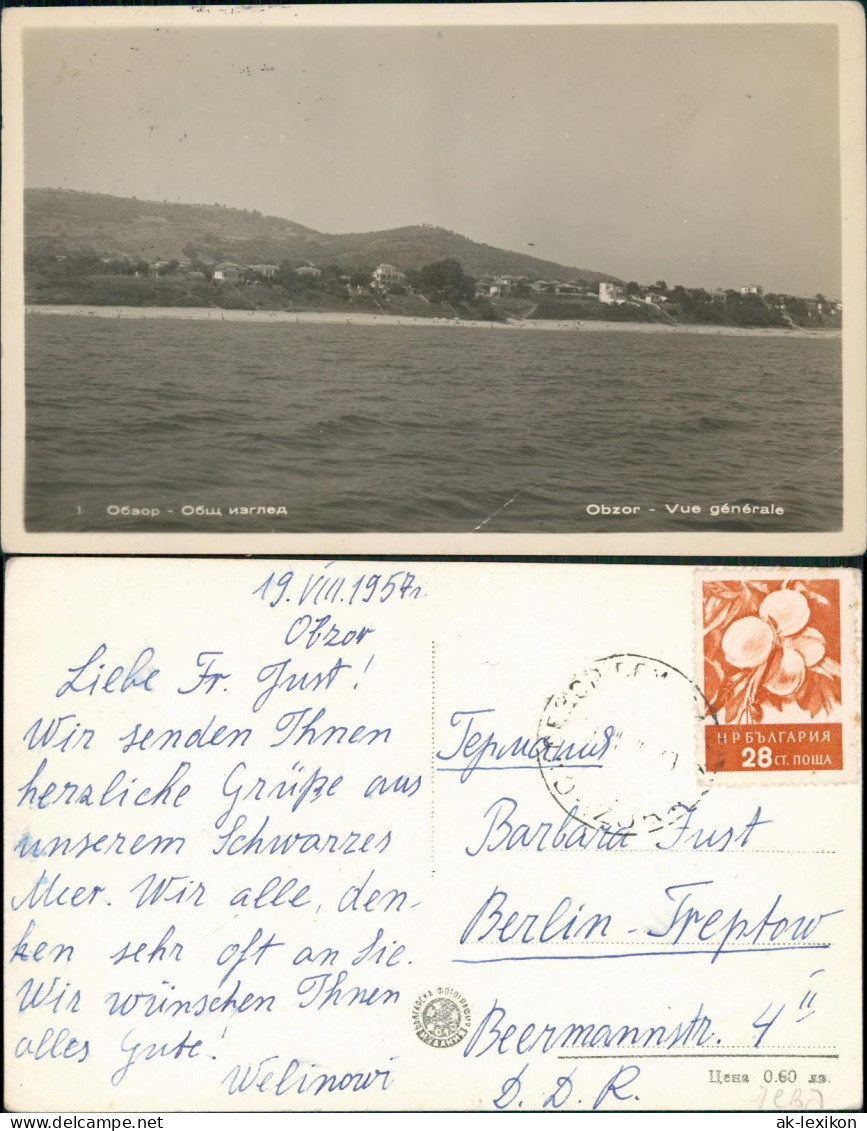 1 Обзор - Общ изглед
Obzor - Vue générale
19. VIII. 1957г.
Obzor
Liebe Fr. Just!
Wir senden Ihnen
herzliche Grüße aus
unserem Schwarzes
Meer. Wir alle, den-
ken sehr oft an Sie.
Wir wünschen Ihnen
alles Gute!
Welinowi
НР БЪЛГАРИЯ
28 СТ. ПОЩА
Германия
Barbara Just
Berlin-Treptow
Beermannstr. 4 II
D. D. R.
БЪЛГАРСКА ФОТОГРАФИЯ
Цена 0.60 лв.
ak-lexikon
www.delcampe.net
ak-lexikon